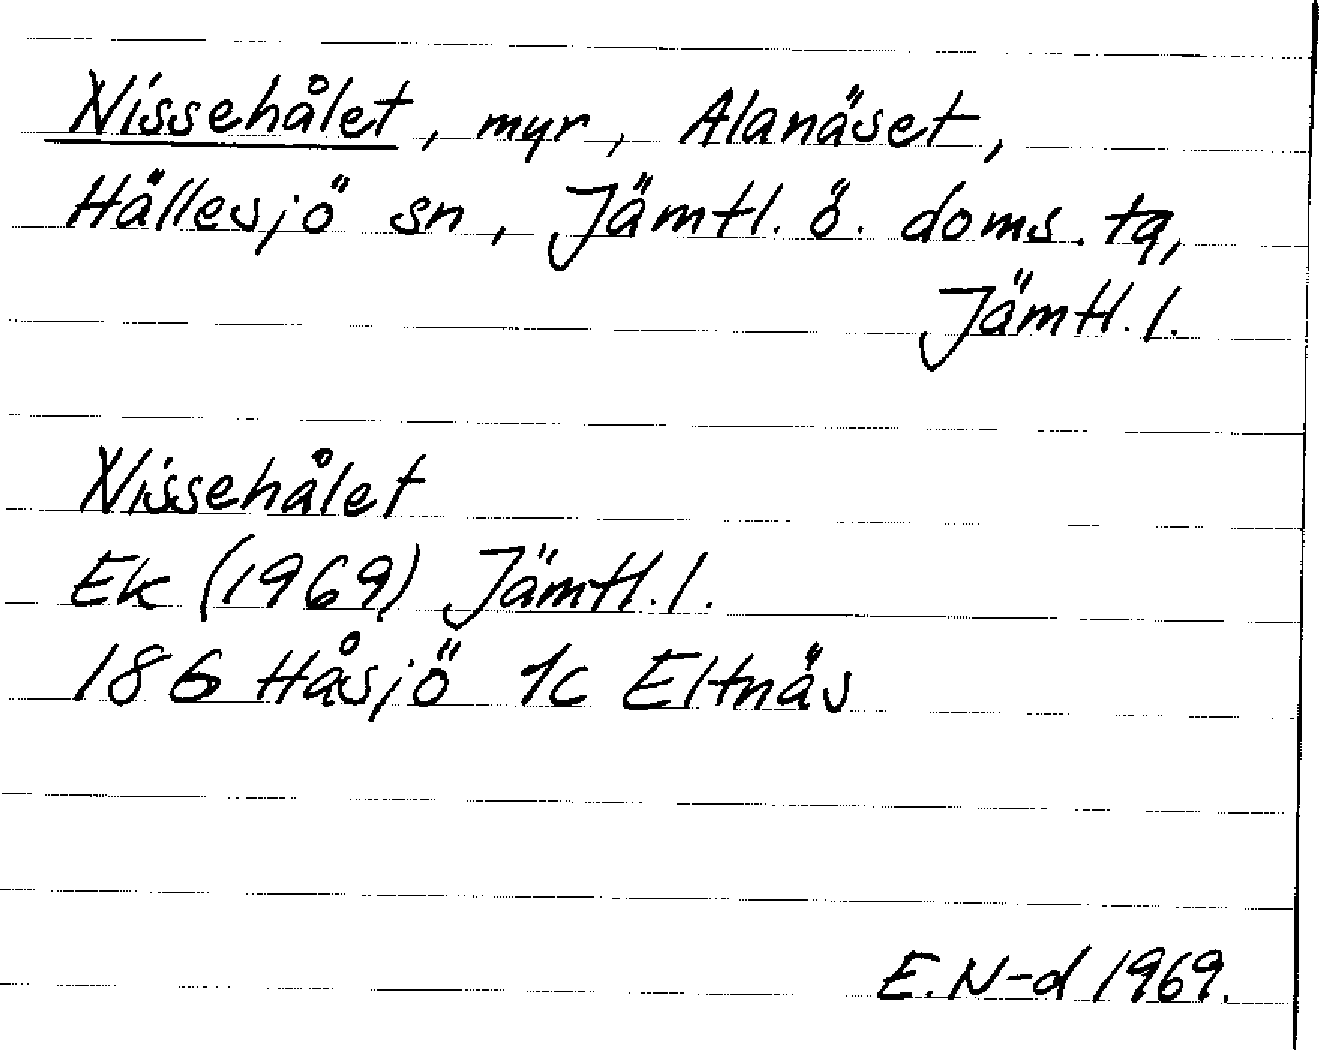 Nissehålet, myr, Alanäset,
Hällesjö sn, Jämtl. ö. doms. tq,
Jämtl. l.
Nissehålet
Ek (1969) Jämtl. l.
186 Håsjö 1c Eltnäs
E. N-d 1969.